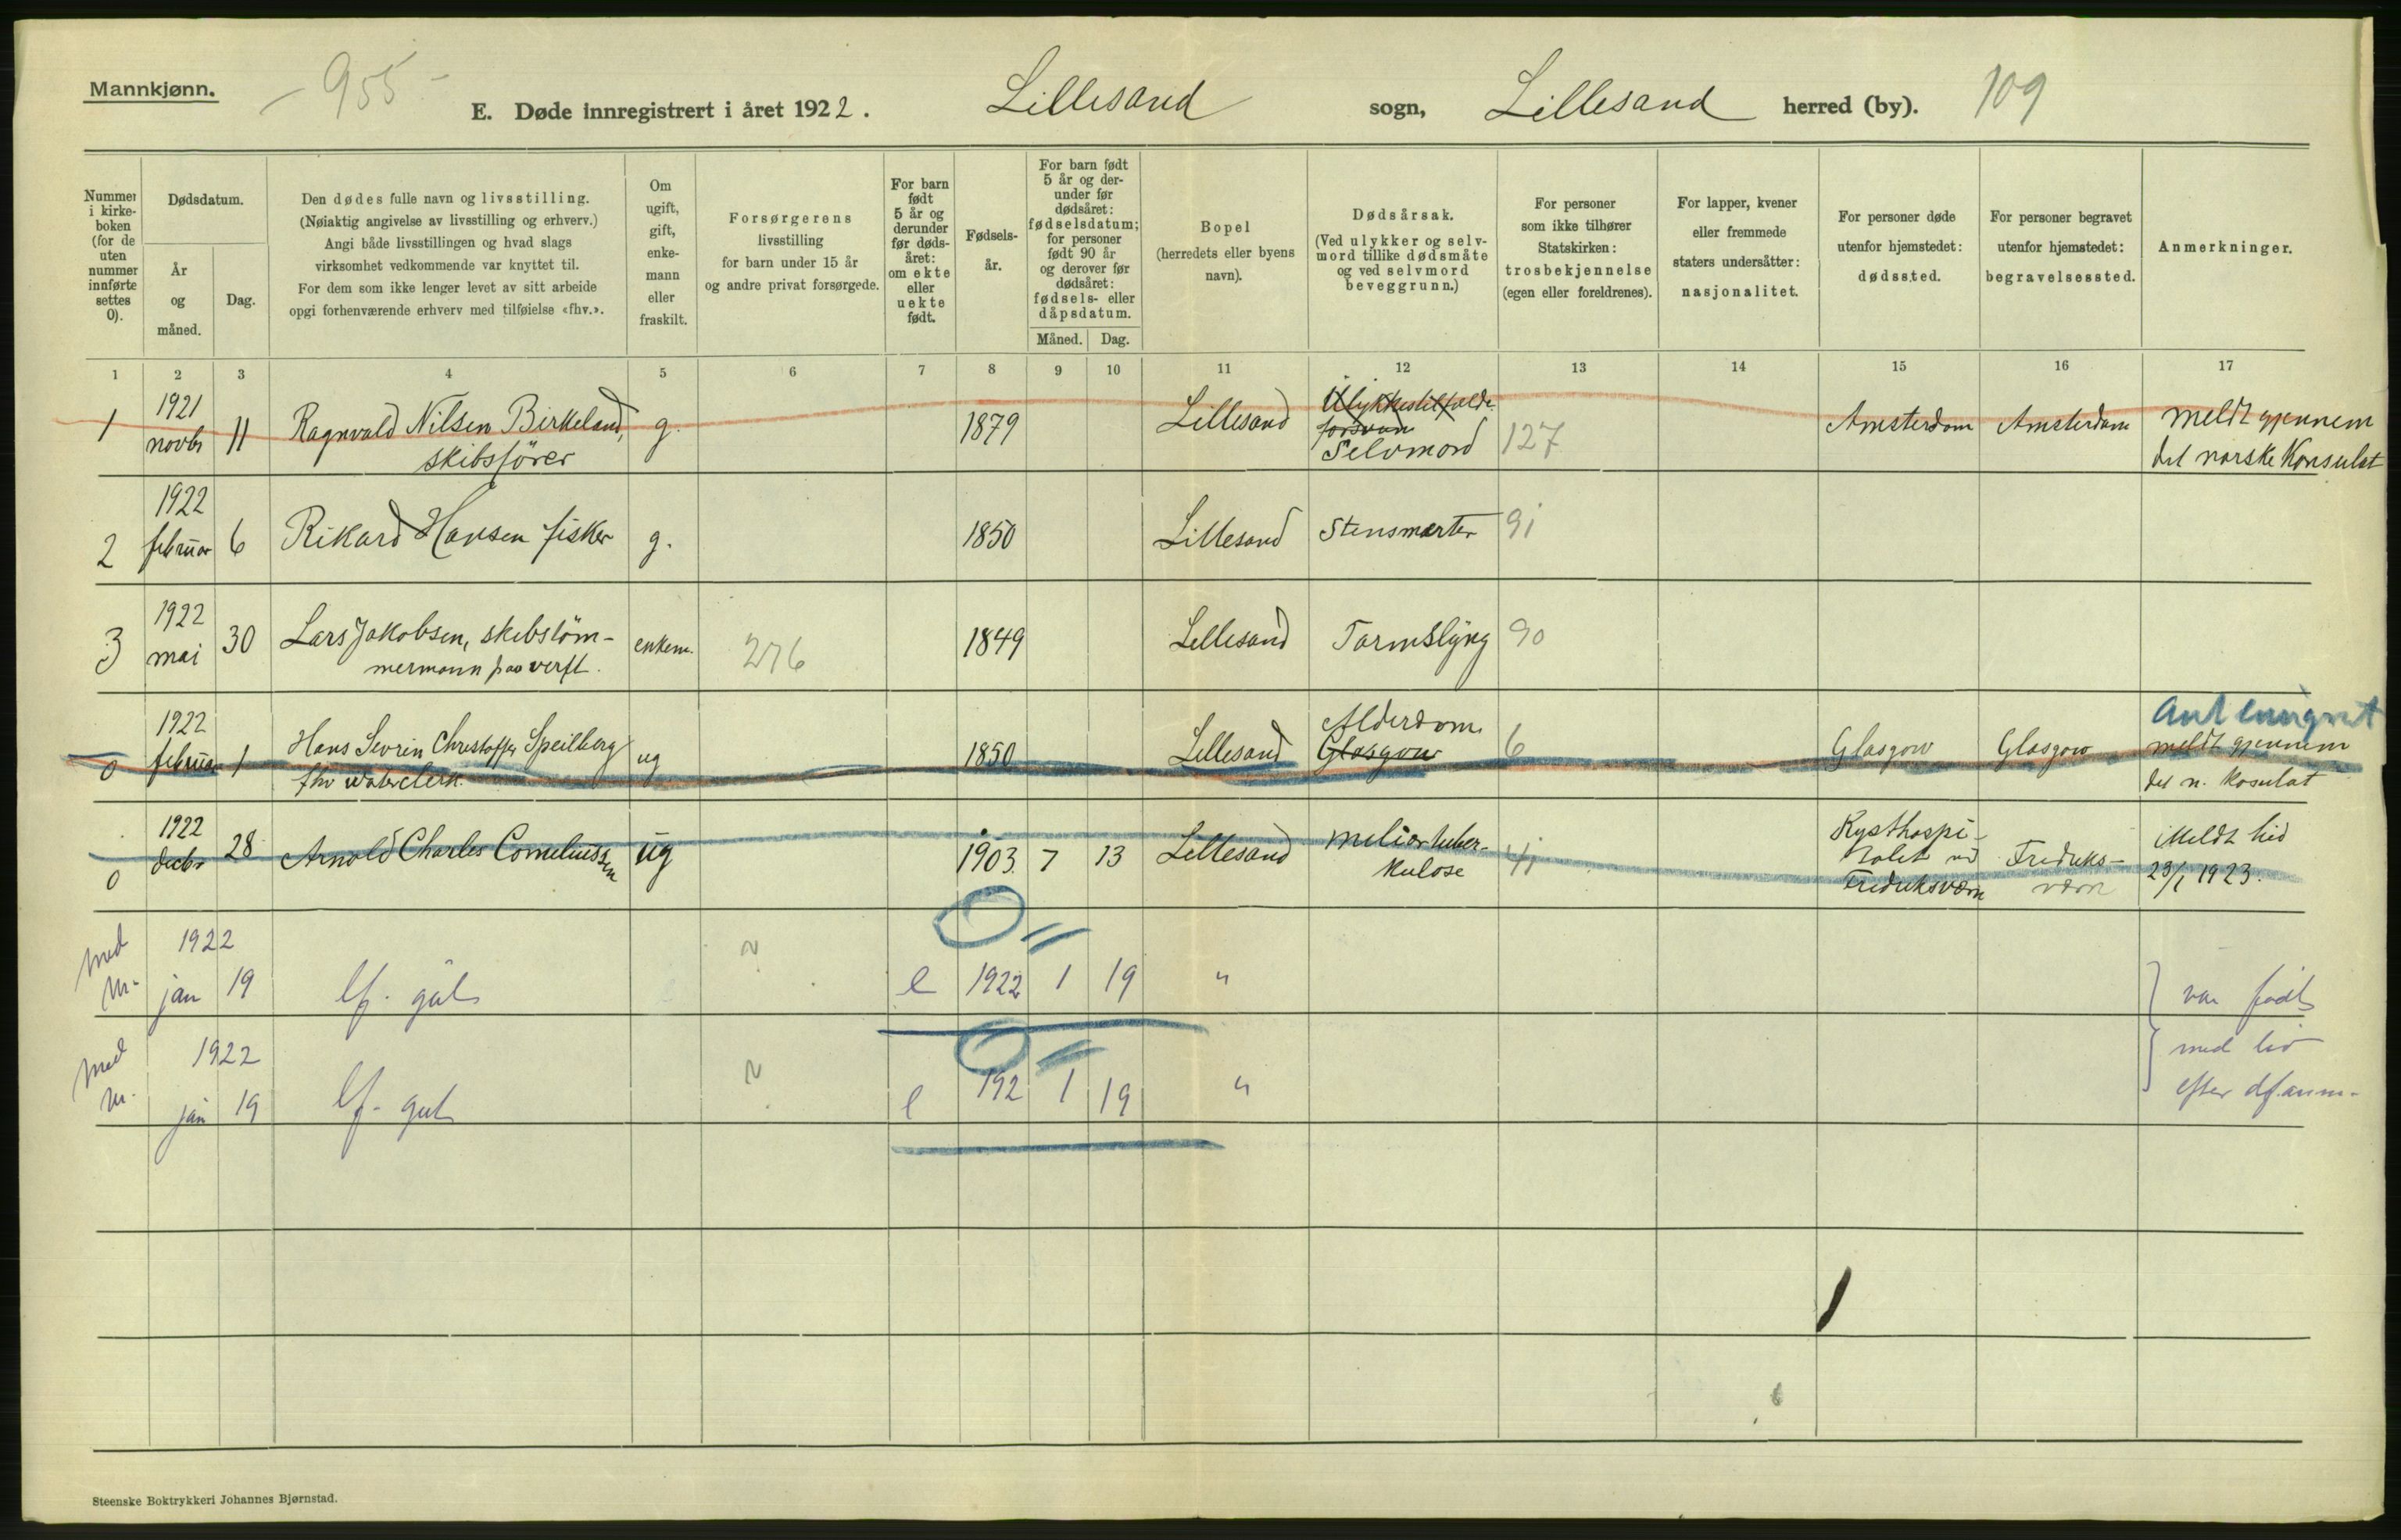 Mannkjønn.
- 955 -
E. Døde innregistrert i året 1922. Lillesand sogn, Lillesand herred (by). 109
Nummer i kirke-boken (for de uten nummer innførte settes 0).
Dødsdatum.
År og måned.
Dag.
Den dødes fulle navn og livsstilling.
(Nøiaktig angivelse av livsstilling og erhverv.)
Angi både livsstillingen og hvad slags
virksomhet vedkommende var knyttet til.
For dem som ikke lenger levet av sitt arbeide
opgi forhenværende erhverv med tilføielse «fhv.».
Om ugift, gift, enke-mann eller fraskilt.
Forsørgerens
livsstilling
for barn under 15 år
og andre privat forsørgede.
For barn født 5 år og derunder før døds-året: om ekte eller uekte født.
Fødsels-år.
For barn født 5 år og der-under før dødsåret: fødselsdatum; for personer født 90 år og derover før dødsåret: fødsels- eller dåpsdatum.
Måned. Dag.
Bopel
(herredets eller byens
navn).
Dødsårsak.
(Ved ulykker og selv-
mord tillike dødsmåte
og ved selvmord
beveggrunn.)
For personer
som ikke tilhører
Statskirken:
trosbekjennelse
(egen eller foreldrenes).
For lapper, kvener
eller fremmede
staters undersåtter:
nasjonalitet.
For personer døde
utenfor hjemstedet:
dødssted.
For personer begravet
utenfor hjemstedet:
begravelsessted.
Anmerkninger.
1 2 3 4 5 6 7 8 9 10 11 12 13 14 15 16 17
1 1921 novbr 11 Ragnvald Nilsen Birkeland, skibsfører g. 1879 Lillesand Ulykkestilfælde Selvmord 127 Amsterdam Amsterdam Meldt gjennem det norske Konsulat
2 1922 februar 6 Rikard Hansen fisker g. 1850 Lillesand Stensmerter 9i
3 1922 mai 30 Lars Jakobsen, skibstöm-mermann paa verft. enkem. 276 1849 Lillesand Tarmslyng 90
0 1922 februar 1 Hans Sevrin Christoffer Speilberg fhv waterclerk. ug 1850 Lillesand Alderdom Glasgow 6 Glasgow Glasgow Ant emigrert meldt gjennem det n. Kosulat
0 1922 decbr 28 Arnold Charles Corneliussen ug 1903. 7 13 Lillesand Miliærtuber-kulose 4i Kysthospi-talet ved Fredriksværn Fredriks-værn Meldt hid 29/1 1923.
med nr. 1922 jan 19 lf. gut e 1922 1 19 "
med nr. 1922 jan 19 lf. gut e 192 1 19 "
var født
med liv
efter df. anm.
Steenske Boktrykkeri Johannes Bjørnstad.